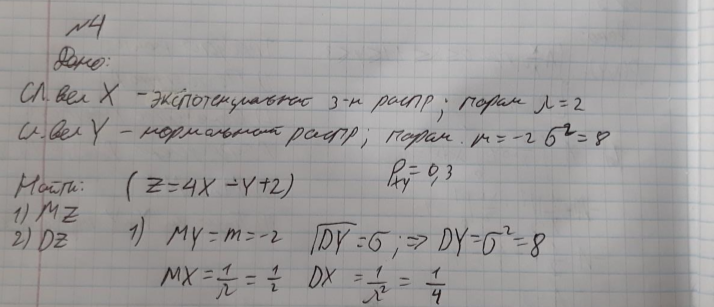 №4
Дано:
Сл. вел X - экспотенциальное з-н распр; парам λ=2
Сл. вел Y - нормальный распр; парам. m=-2 σ²=8
ρxy=0,3
Найти: (Z=4X-Y+2)
1) MZ
2) DZ
1) MY=m=-2 √DY=σ; => DY=σ²=8
MX=1/λ=1/2 DX=1/λ²=1/4